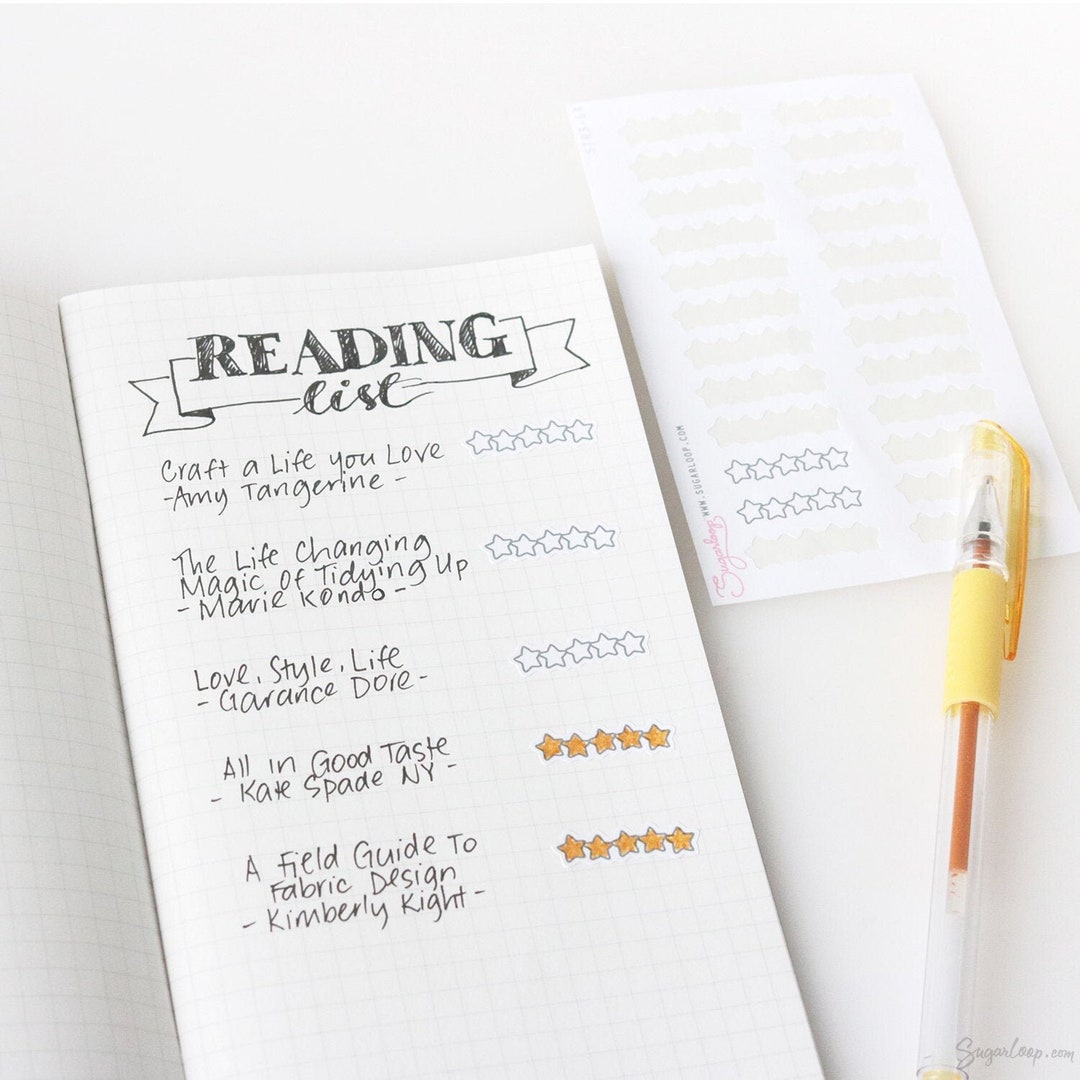 READING
list
Craft a Life you Love
-Amy Tangerine -
The Life Changing
Magic Of Tidying Up
- Marie Kondo -
Love, Style, Life
- Garance Dore -
All in Good Taste
- Kate Spade NY -
A Field Guide To
Fabric Design
- Kimberly Kight -
WWW.SUGARLOOP.COM
Sugarloop
Sugarloop.com